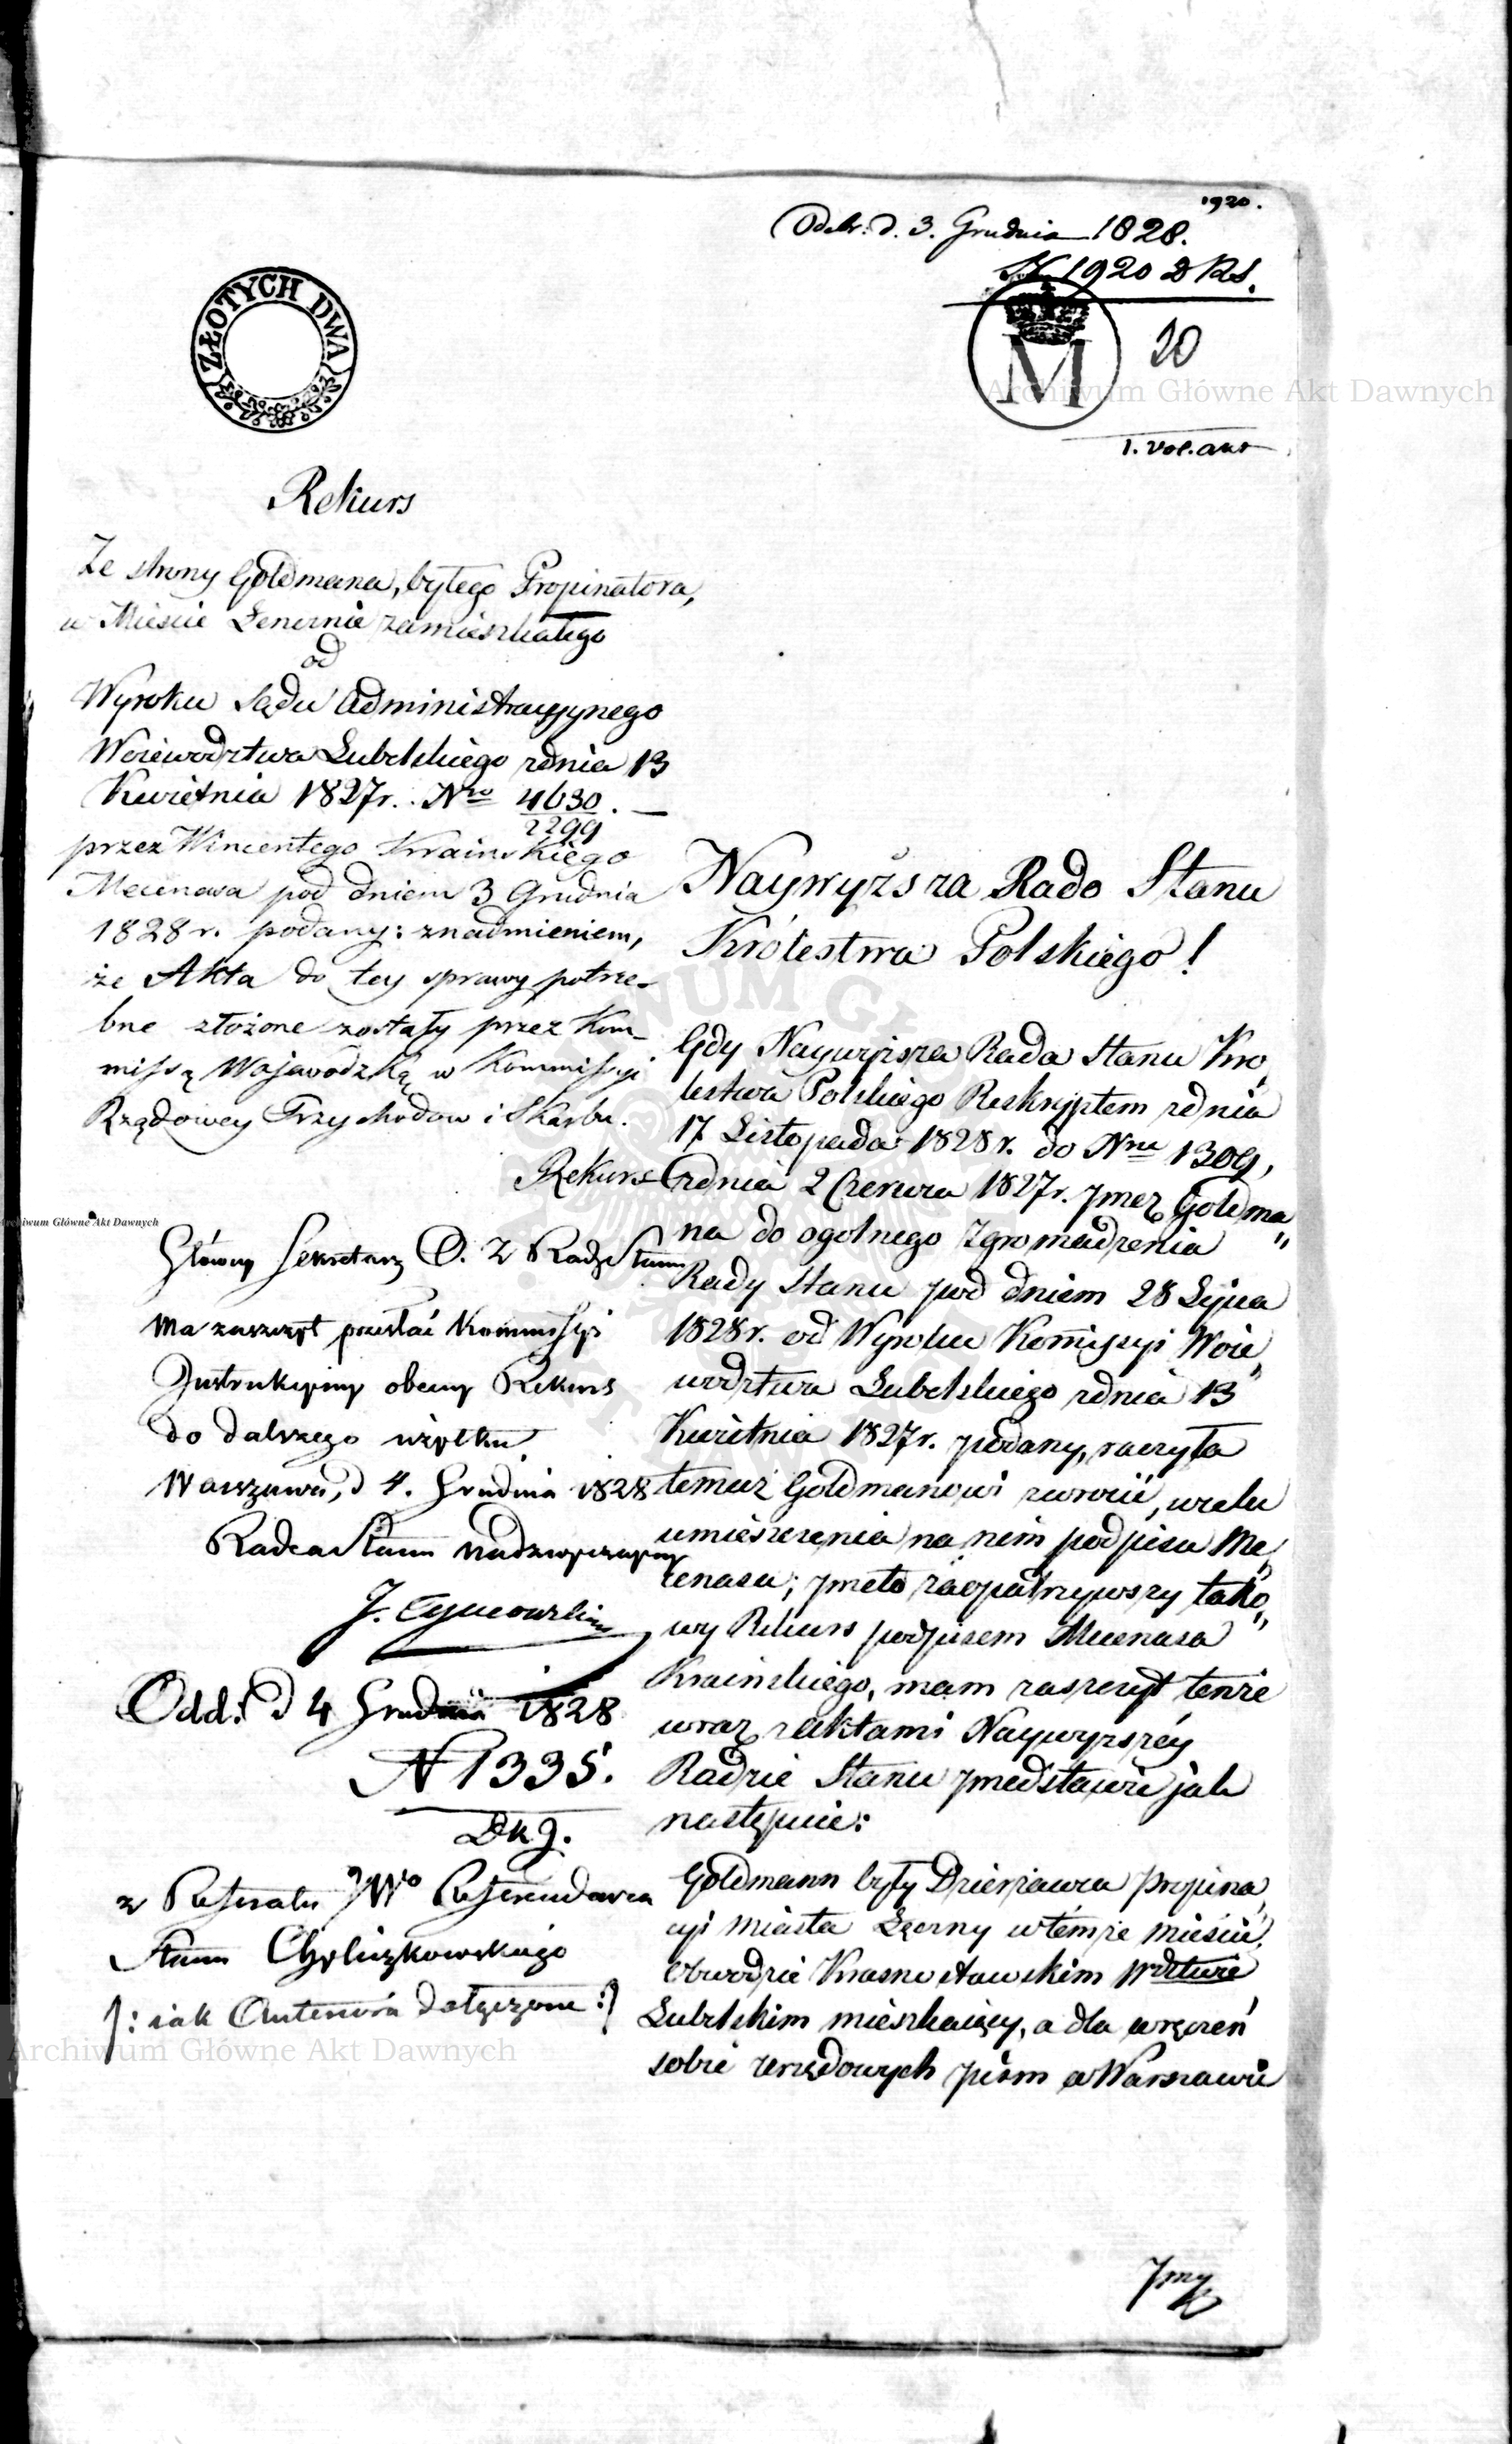 1920.
Odebr: d. 3. Grudnia 1828.
N. 1920 D RS.
20
ZŁOTYCH DWA
M
1. vol. akt
Rekurs
Ze strony Goldmana, byłego Propinatora,
w Mieście Łęcznie zamieszkałego
od
Wyroku Sądu Administracyjnego
Woiewodztwa Lubelskiego zdnia 13
Kwietnia 1827r. Nro 4630. —
2299
przez Wincentego Krainskiego
Mecenasa pod dniem 3 Grudnia
1828r. podany: znadmieniem,
że Akta do tey sprawy potrze-
bne złożone zostały przez Kom-
missyą Wojewodzką w Kommissyi
Rządowey Przychodow i Skarbu.
Główny Sekretarz D. 2 Rady Stanu
ma zaszczyt przesłać Kommissyi
Instrukcyiney obecny Rekurs
do dalszego użytku
Warszawa, d 4. Grudnia 1828
Radca Stanu Nadzwyczayny
J.
Odd: d 4 Grudnia 1828
N 1335.
DKJ.
z Referatu JWo Referendarza
Stanu Chyliczkowskiego
/: iak Anteriora dołączone :/
Naywyższa Rado Stanu
Królestwa Polskiego!
Gdy Naywyższa Rada Stanu Kro„
lestwa Polskiego Reskryptem zdnia
17 Listopada 1828r. do Nru 1309,
Rekurs zdnia 2 Czerwca 1827r. przez Goldma„
na do ogolnego Zgromadzenia
Rady Stanu pod dniem 28 Lipca
1828r. od Wyroku Kommissyi Woie„
wodztwa Lubelskiego zdnia 13
Kwietnia 1827r. podany, raczyła
temuz Goldmanowi zwrocić, wcelu
umieszczenia na nim podpisu Me„
cenasa; przeto zaopatrzywszy tako„
wy Rekurs podpisem Mecenasa
Krainskiego, mam zaszczyt tenże
wraz zaktami Naywyzszéy
Radzie Stanu przedstawić jak
następuie:
Goldmann były Dzierżawca propina„
cyi miasta Łęczny wtémże mieście
Obwodzie Krasnostawskim Wdztwie
Lubelskim mieszkaiący, a dla wręczeń
sobie urzędowych pism w Warszawie
przy
Archiwum Główne Akt Dawnych
Archiwum Główne Akt Dawnych
Archiwum Główne Akt Dawnych